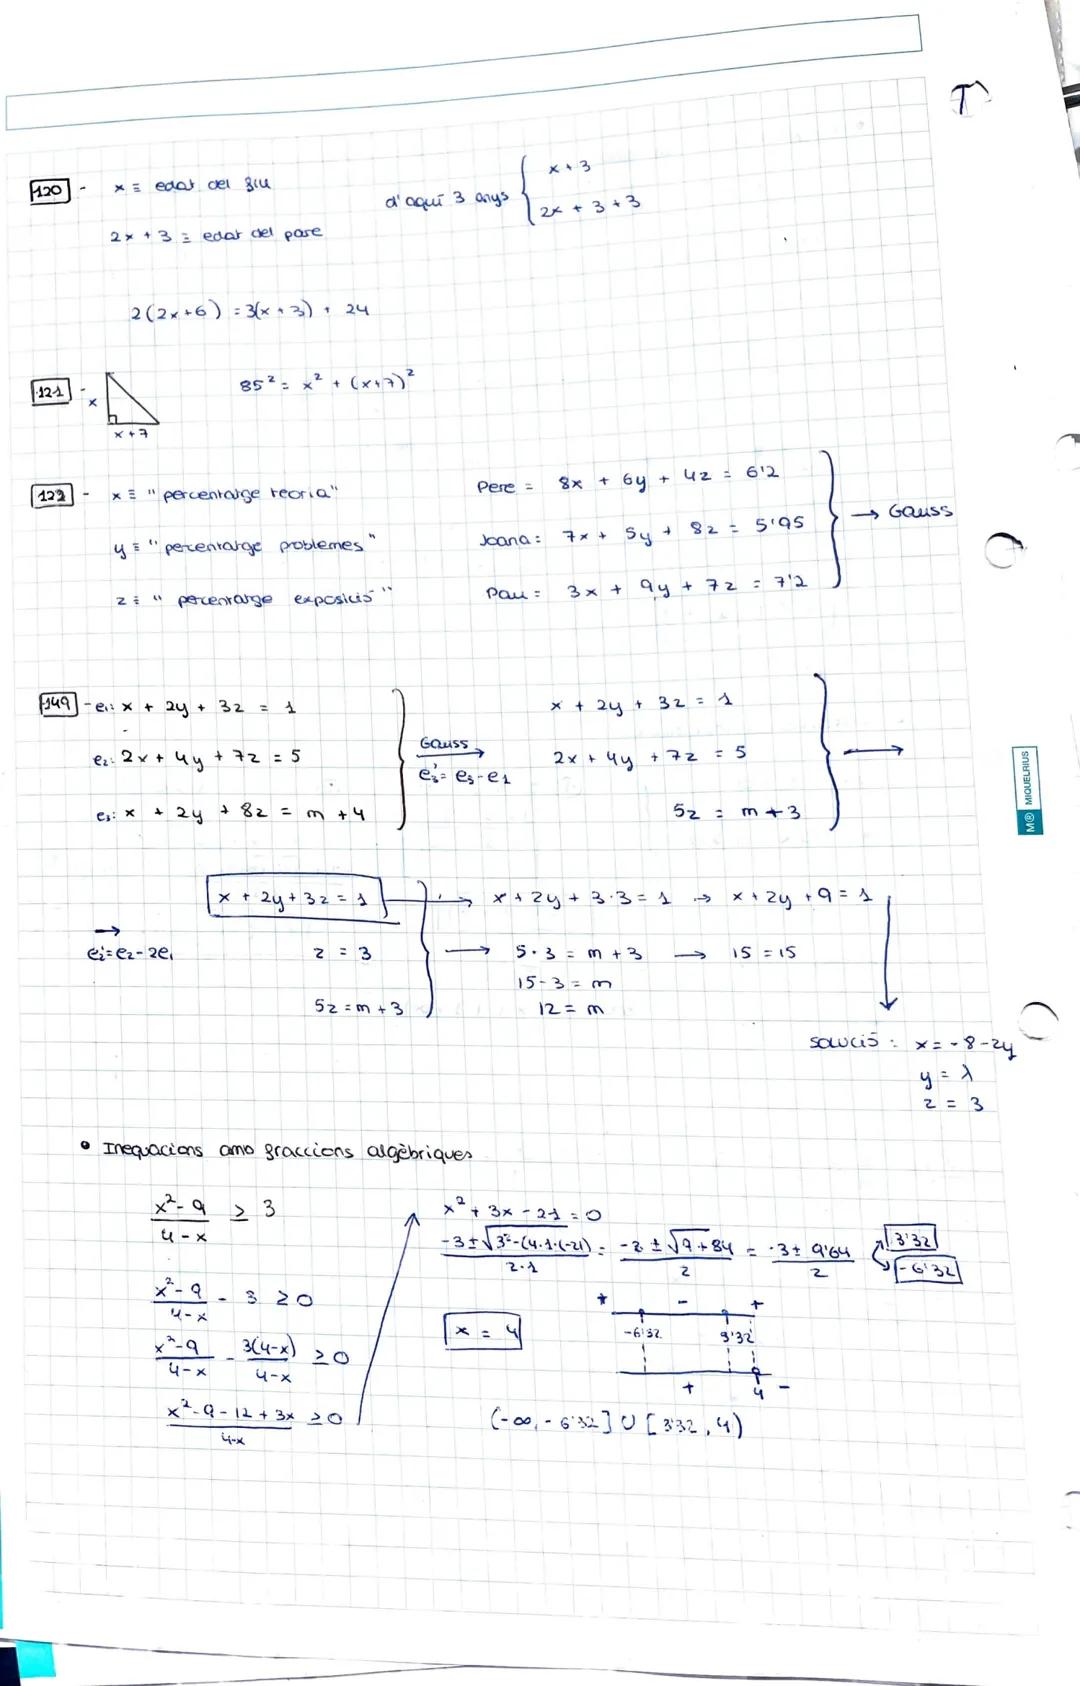 T
120 - x ≡ edat del fill
2x + 3 ≡ edat del pare
d'aquí 3 anys { x + 3
2x + 3 + 3
2(2x+6) = 3(x+3) + 24
121 - x
x+7
85² = x² + (x+7)²
122 - x ≡ "percentatge teoria"
y ≡ "percentatge problemes"
z ≡ "percentatge exposició"
Pere = 8x + 6y + 4z = 6'2
Joana: 7x + 5y + 8z = 5'95
Pau = 3x + 9y + 7z = 7'2
→ Gauss
149 - e₁: x + 2y + 3z = 1
e₂: 2x + 4y + 7z = 5
e₃: x + 2y + 8z = m + 4
Gauss →
e₃' = e₃ - e₁
x + 2y + 3z = 1
2x + 4y + 7z = 5
5z = m + 3
→
M® MIQUELRIUS
→ e₂' = e₂ - 2e₁
x + 2y + 3z = 1 → x + 2y + 3·3 = 1 → x + 2y + 9 = 1
z = 3 → 5·3 = m + 3 → 15 = 15
15 - 3 = m
5z = m + 3
12 = m
solució: x = -8 - 2y
y = λ
z = 3
• Inequacions amb fraccions algèbriques
x² - 9 / 4 - x ≥ 3
x² - 9 / 4 - x - 3 ≥ 0
x² - 9 / 4 - x - 3(4-x) / 4 - x ≥ 0
x² - 9 - 12 + 3x / 4-x ≥ 0
x² + 3x - 21 = 0
-3 ± √3² - (4·1·(-21) / 2·1 = -3 ± √9 + 84 / 2 = -3 ± 9'64 / 2
3'32
-6'32
x = 4
+ - +
-6'32 3'32
+ 4 -
(-∞, -6'32] ∪ [3'32, 4)